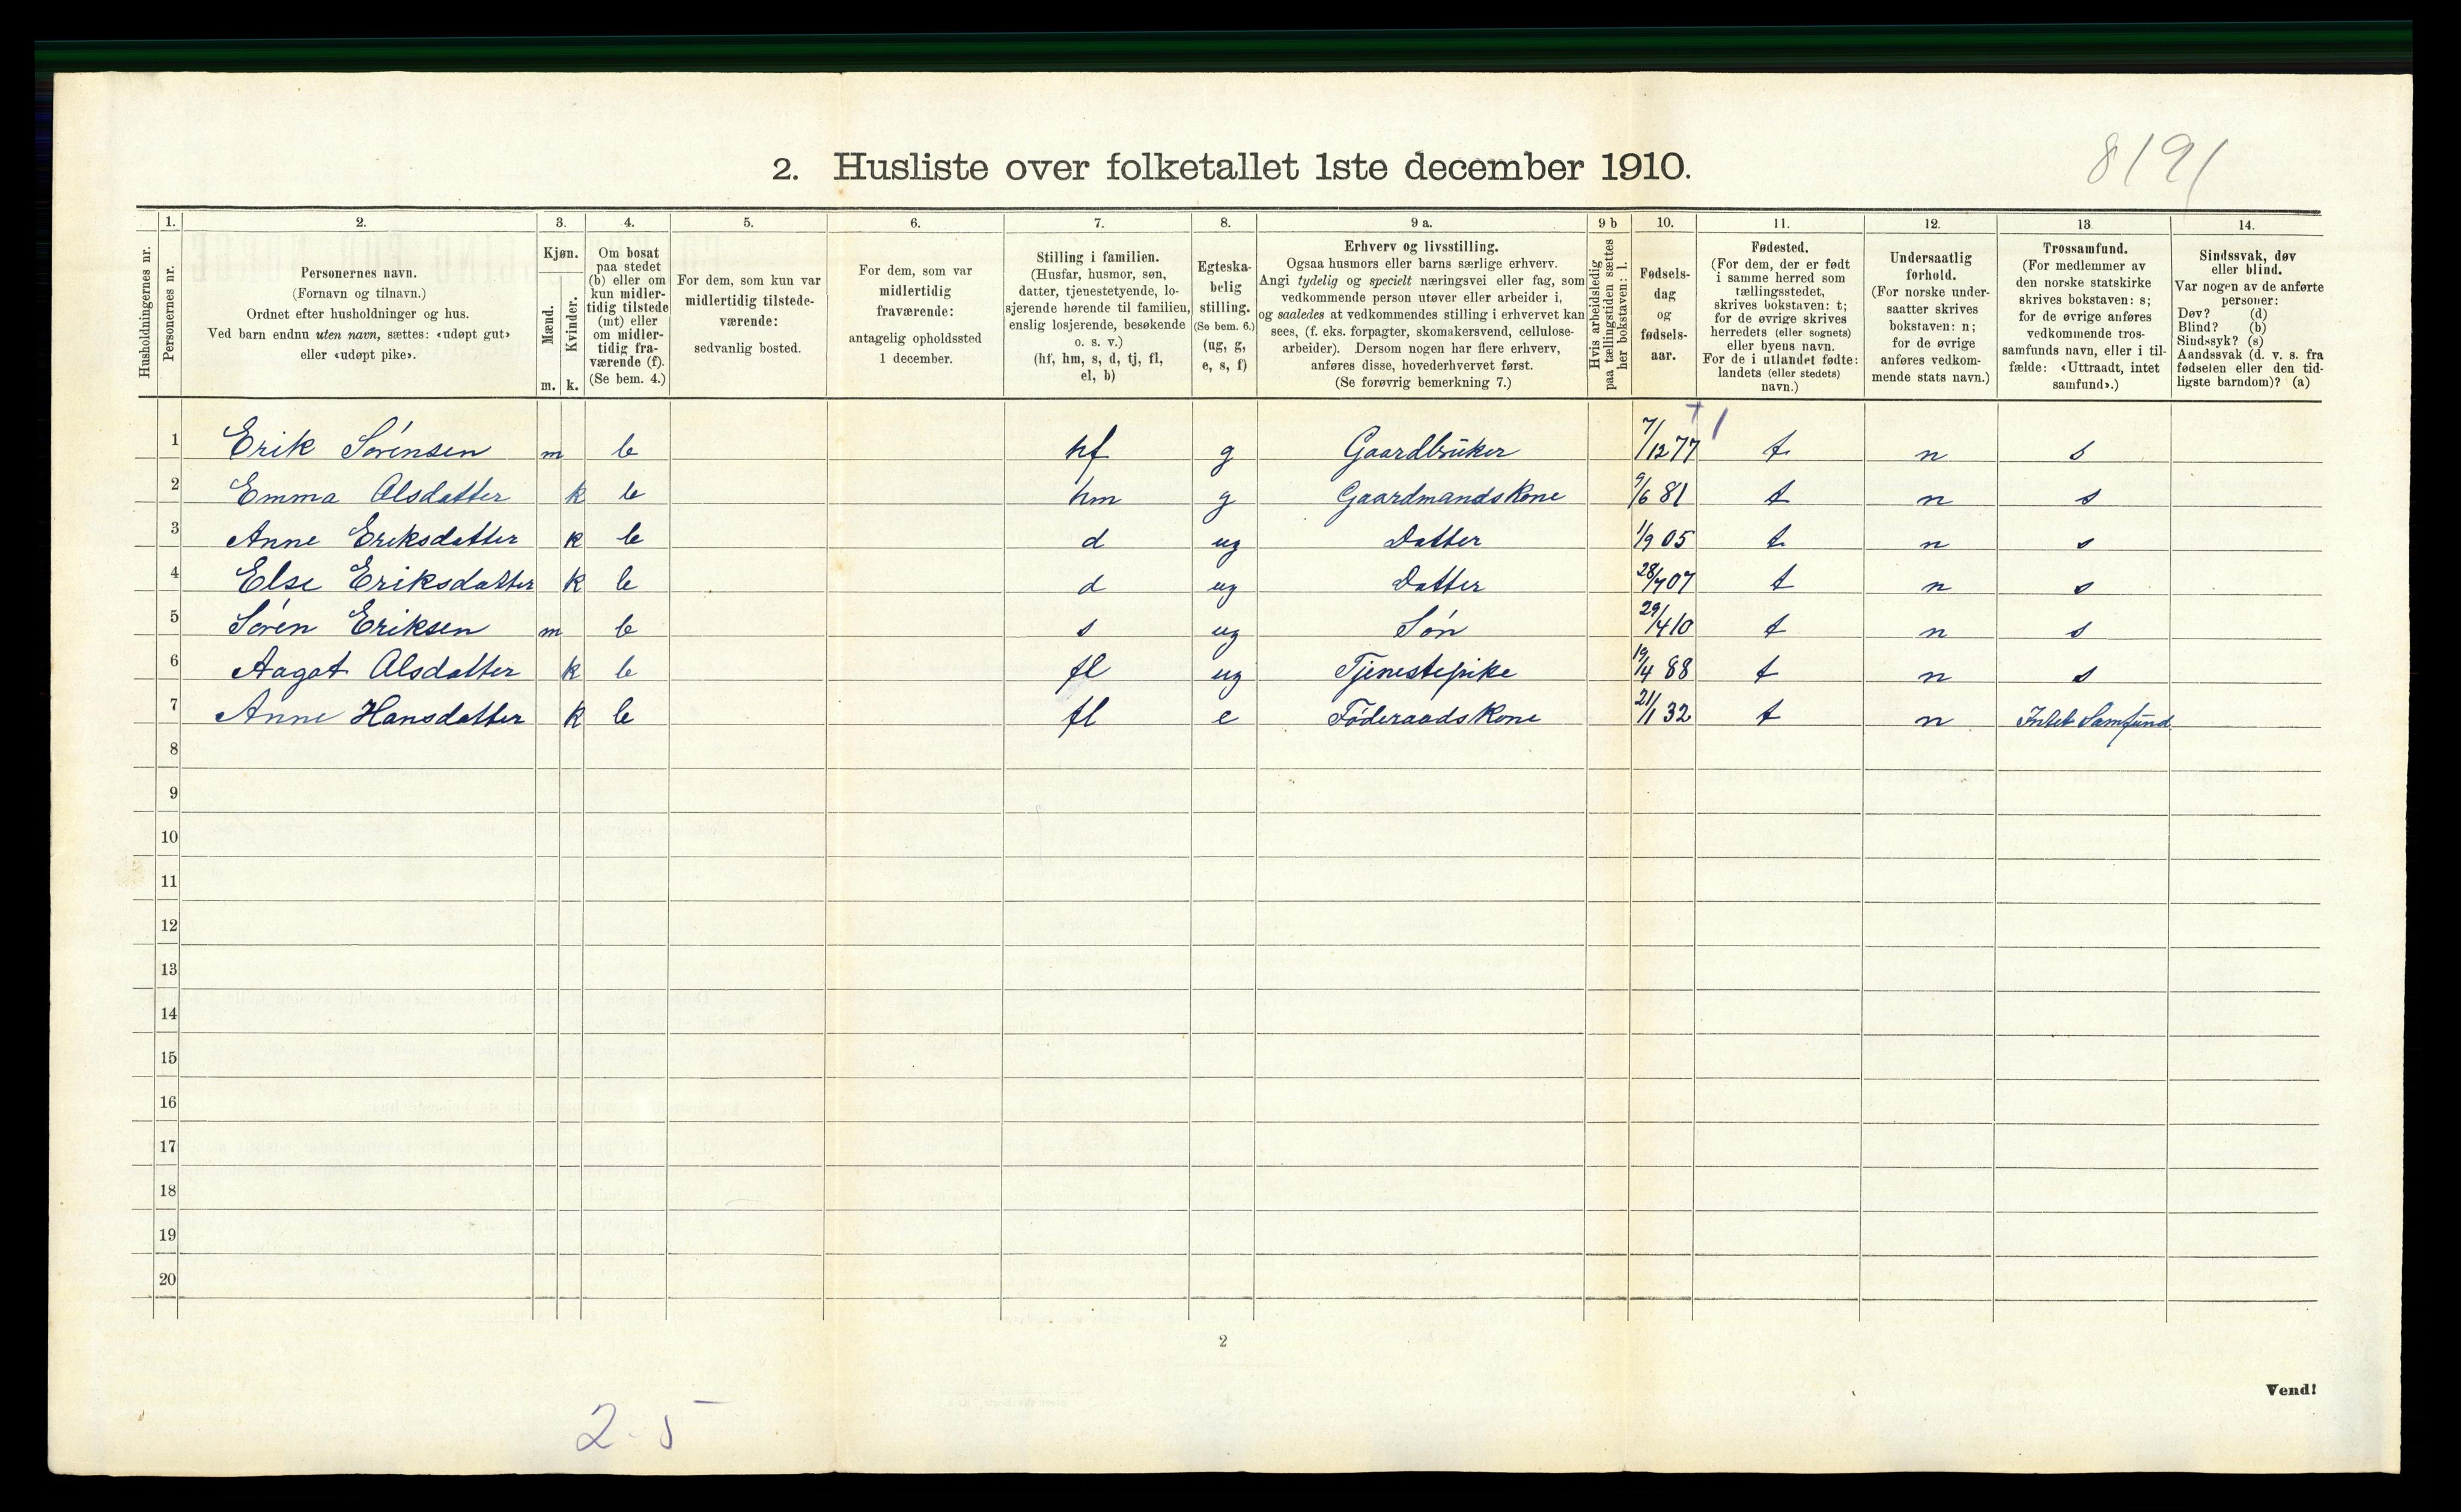 8191
2. Husliste over folketallet 1ste december 1910.
Husholdningernes nr.
1.
Personernes nr.
2.
Personernes navn.
(Fornavn og tilnavn.)
Ordnet efter husholdninger og hus.
Ved barn endnu uten navn, sættes: «udøpt gut»
eller «udøpt pike».
3.
Kjøn.
Mænd.
m.
Kvinder.
k.
4.
Om bosat
paa stedet
(b) eller om
kun midler-
tidig tilstede
(mt) eller
om midler-
tidig fra-
værende (f).
(Se bem. 4.)
5.
For dem, som kun var
midlertidig tilstede-
værende:
sedvanlig bosted.
6.
For dem, som var
midlertidig
fraværende:
antagelig opholdssted
1 december.
7.
Stilling i familien.
(Husfar, husmor, søn,
datter, tjenestetyende, lo-
sjerende hørende til familien,
enslig losjerende, besøkende
o. s. v.)
(hf, hm, s, d, tj, fl,
el, b)
8.
Egteska-
belig
stilling.
(Se bem. 6.)
(ug, g,
e, s, f)
9 a.
Erhverv og livsstilling.
Ogsaa husmors eller barns særlige erhverv.
Angi tydelig og specielt næringsvei eller fag, som
vedkommende person utøver eller arbeider i,
og saaledes at vedkommendes stilling i erhvervet kan
sees, (f. eks. forpagter, skomakersvend, cellulose-
arbeider). Dersom nogen har flere erhverv,
anføres disse, hovederhvervet først.
(Se forøvrig bemerkning 7.)
9 b
Hvis arbeidsledig
paa tællingstiden sættes
her bokstaven: l.
10.
Fødsels-
dag
og
fødsels-
aar.
11.
Fødested.
(For dem, der er født
i samme herred som
tællingsstedet,
skrives bokstaven: t;
for de øvrige skrives
herredets (eller sognets)
eller byens navn.
For de i utlandet fødte:
landets (eller stedets)
navn.)
12.
Undersaatlig
forhold.
(For norske under-
saatter skrives
bokstaven: n;
for de øvrige
anføres vedkom-
mende stats navn.)
13
Trossamfund.
(For medlemmer av
den norske statskirke
skrives bokstaven: s;
for de øvrige anføres
vedkommende tros-
samfunds navn, eller i til-
fælde: «Uttraadt, intet
samfund».)
14.
Sindssvak, døv
eller blind.
Var nogen av de anførte
personer:
Døv? (d)
Blind? (b)
Sindssyk? (s)
Aandssvak (d. v. s. fra
fødselen eller den tid-
ligste barndom)? (a)
1 Erik Sørensen m b hf g Gaardbruker 7/12 77 t n s
2 Emma Olsdatter k b hm g Gaardmandskone 9/6 81 t n s
3 Anne Eriksdatter k b d ug Datter 1/9 05 t n s
4 Else Eriksdatter k b d ug Datter 28/7 07 t n s
5 Søren Eriksen m b s ug Søn 29/4 10 t n s
6 Aagot Olsdatter k b fl ug Tjenestepike 19/4 88 t n s
7 Anne Hansdatter k b fl e Føderaadskone 21/1 32 t n Intet Samfund
8
9
10
11
12
13
14
15
16
17
18
19
20
2
Vend!
2-5